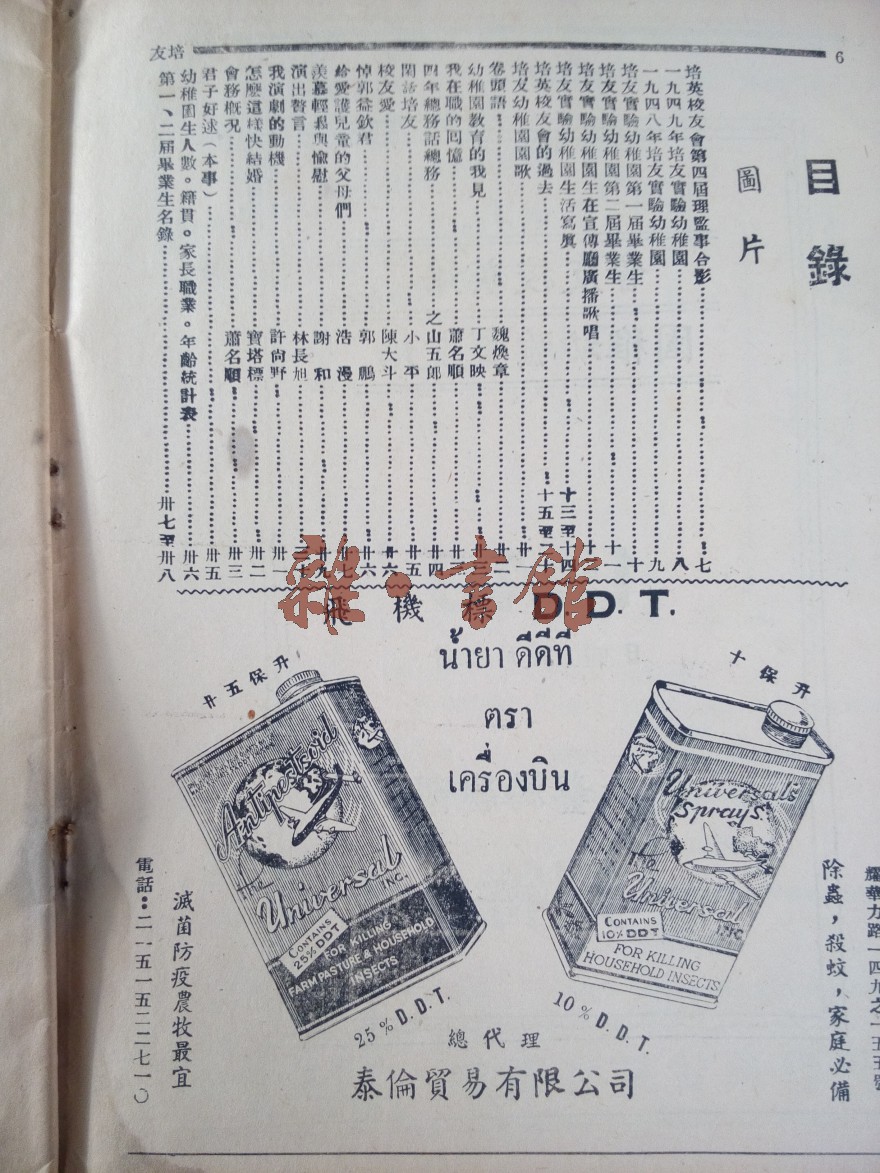 6
培友
目錄
圖片
培英校友會第四屆理監事合影……七
一九四九年培友實驗幼稚園……八
一九四八年培友實驗幼稚園……九
培友實驗幼稚園第一屆畢業生……十
培友實驗幼稚園第二屆畢業生……十一
培友實驗幼稚園生在宣傳廳廣播歌唱
培友實驗幼稚園生活寫真……十三至十四
培英校友會的過去……十五至二十
培友幼稚園園歌
卷頭語……魏煥章
幼稚園教育的我見……丁文映……廿三
我在職的回憶……蕭名順
四年總務話總務……之山五郎……廿四
閑話培友……小平……廿五
校友愛……陳大斗
悼郭益欽君……郭鵬……廿六
給愛護兒童的父母們……浩漫……廿七
羨慕輕鬆與愉慰……謝和……廿九
演出聲言……林長旭
我演劇的動機……許尚野……卅一
怎麼這樣快結婚……寶塔標……卅二
會務概況……蕭名順……卅三
君子好逑(本事)……卅五
幼稚園生人數。籍貫。家長職業。年齡統計表……卅六
第一、二屆畢業生名錄……卅七至卅八
雜·書館
飛機標 D.D.T.
น้ำยา ดีดีที
ตรา
เครื่องบิน
廿五保升
十保升
Antinestroid
The
Universal
INC.
CONTAINS
25% DDT
FOR KILLING
FARM PASTURE & HOUSEHOLD
INSECTS
25% D.D.T.
Universal's
Sprays
The
Universal
INC
CONTAINS
10% DDT
FOR KILLING
HOUSEHOLD INSECTS
10% D.D.T.
除蟲,殺蚊,家庭必備
滅菌防疫農牧最宜
電話:二一五一五二二七一〇
總代理
泰倫貿易有限公司